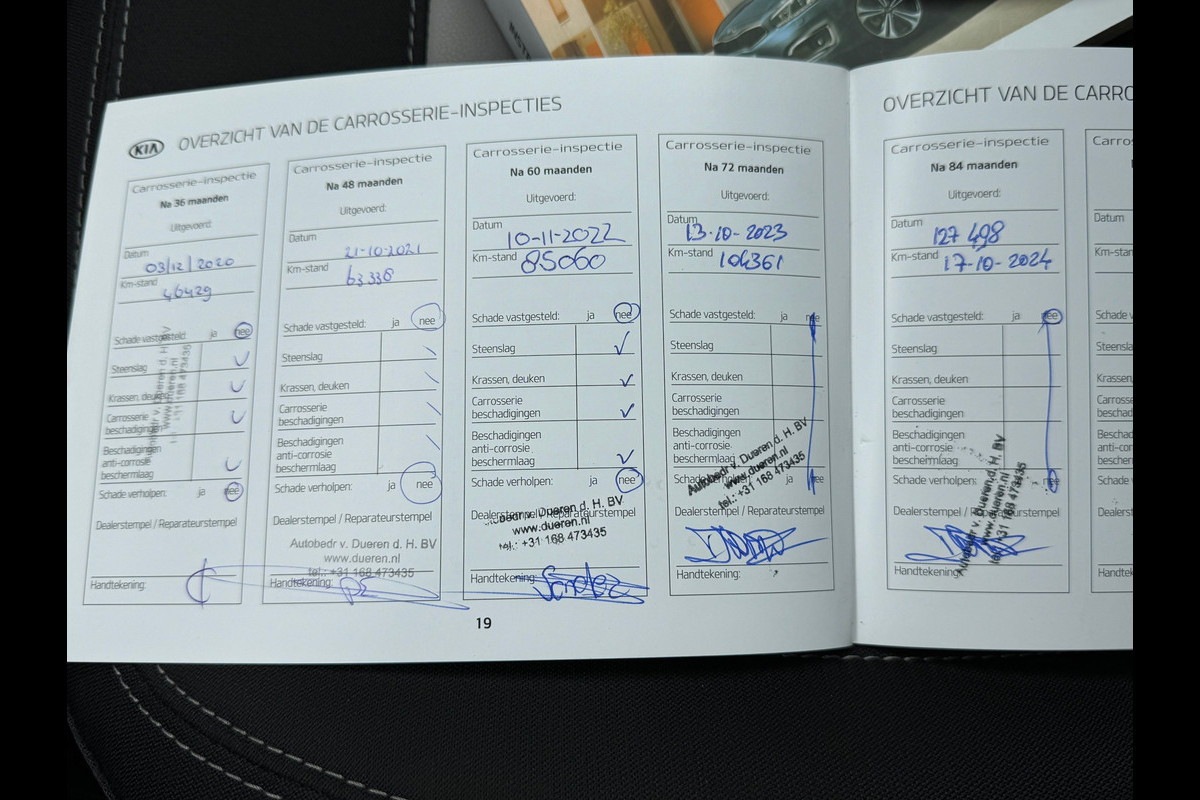 KIA
OVERZICHT VAN DE CARROSSERIE-INSPECTIES
Carrosserie-inspectie
Na 36 maanden
Uitgevoerd:
Datum
03/12/2020
Km-stand
46429
Schade vastgesteld: ja nee
Steenslag
Krassen, deuken
Carrosserie
beschadigingen
Beschadigingen
anti-corrosie
beschermlaag
Schade verholpen: ja nee
Autobedr v. Dueren d. H. BV
www.dueren.nl
+31 168 473435
Dealerstempel / Reparateurstempel
Handtekening:
Carrosserie-inspectie
Na 48 maanden
Uitgevoerd:
Datum
21-10-2021
Km-stand
63338
Schade vastgesteld: ja nee
Steenslag
Krassen, deuken
Carrosserie
beschadigingen
Beschadigingen
anti-corrosie
beschermlaag
Schade verholpen: ja nee
Dealerstempel / Reparateurstempel
Autobedr v. Dueren d. H. BV
www.dueren.nl
tel.: +31 168 473435
Handtekening:
Carrosserie-inspectie
Na 60 maanden
Uitgevoerd:
Datum
10-11-2022
Km-stand
85060
Schade vastgesteld: ja nee
Steenslag
Krassen, deuken
Carrosserie
beschadigingen
Beschadigingen
anti-corrosie
beschermlaag
Schade verholpen: ja nee
Dealerstempel / Reparateurstempel
v. Dueren d. H. BV
www.dueren.nl
tel.: +31 168 473435
Handtekening:
Carrosserie-inspectie
Na 72 maanden
Uitgevoerd:
Datum
13-10-2023
Km-stand
104361
Schade vastgesteld: ja nee
Steenslag
Krassen, deuken
Carrosserie
beschadigingen
Beschadigingen
anti-corrosie
beschermlaag
Schade verholpen: ja nee
Autobedr v. Dueren d. H. BV
www.dueren.nl
tel.: +31 168 473435
Dealerstempel / Reparateurstempel
Handtekening:
19
OVERZICHT VAN DE CARRO
Carrosserie-inspectie
Na 84 maanden
Uitgevoerd:
Datum
127 498
Km-stand
17-10-2024
Schade vastgesteld: ja nee
Steenslag
Krassen, deuken
Carrosserie
beschadigingen
Beschadigingen
anti-corrosie
beschermlaag
Schade verholpen: ja nee
Dealerstempel / Reparateurstempel
Autobedr v. Dueren d. H. BV
www.dueren.nl
tel.: +31 168 473435
Handtekening:
Carros
Datum
Km-stand
Schade
Steensla
Krassen,
Carrosse
beschad
Beschad
anti-corr
bescherm
Schade
Dealerst
Handtek